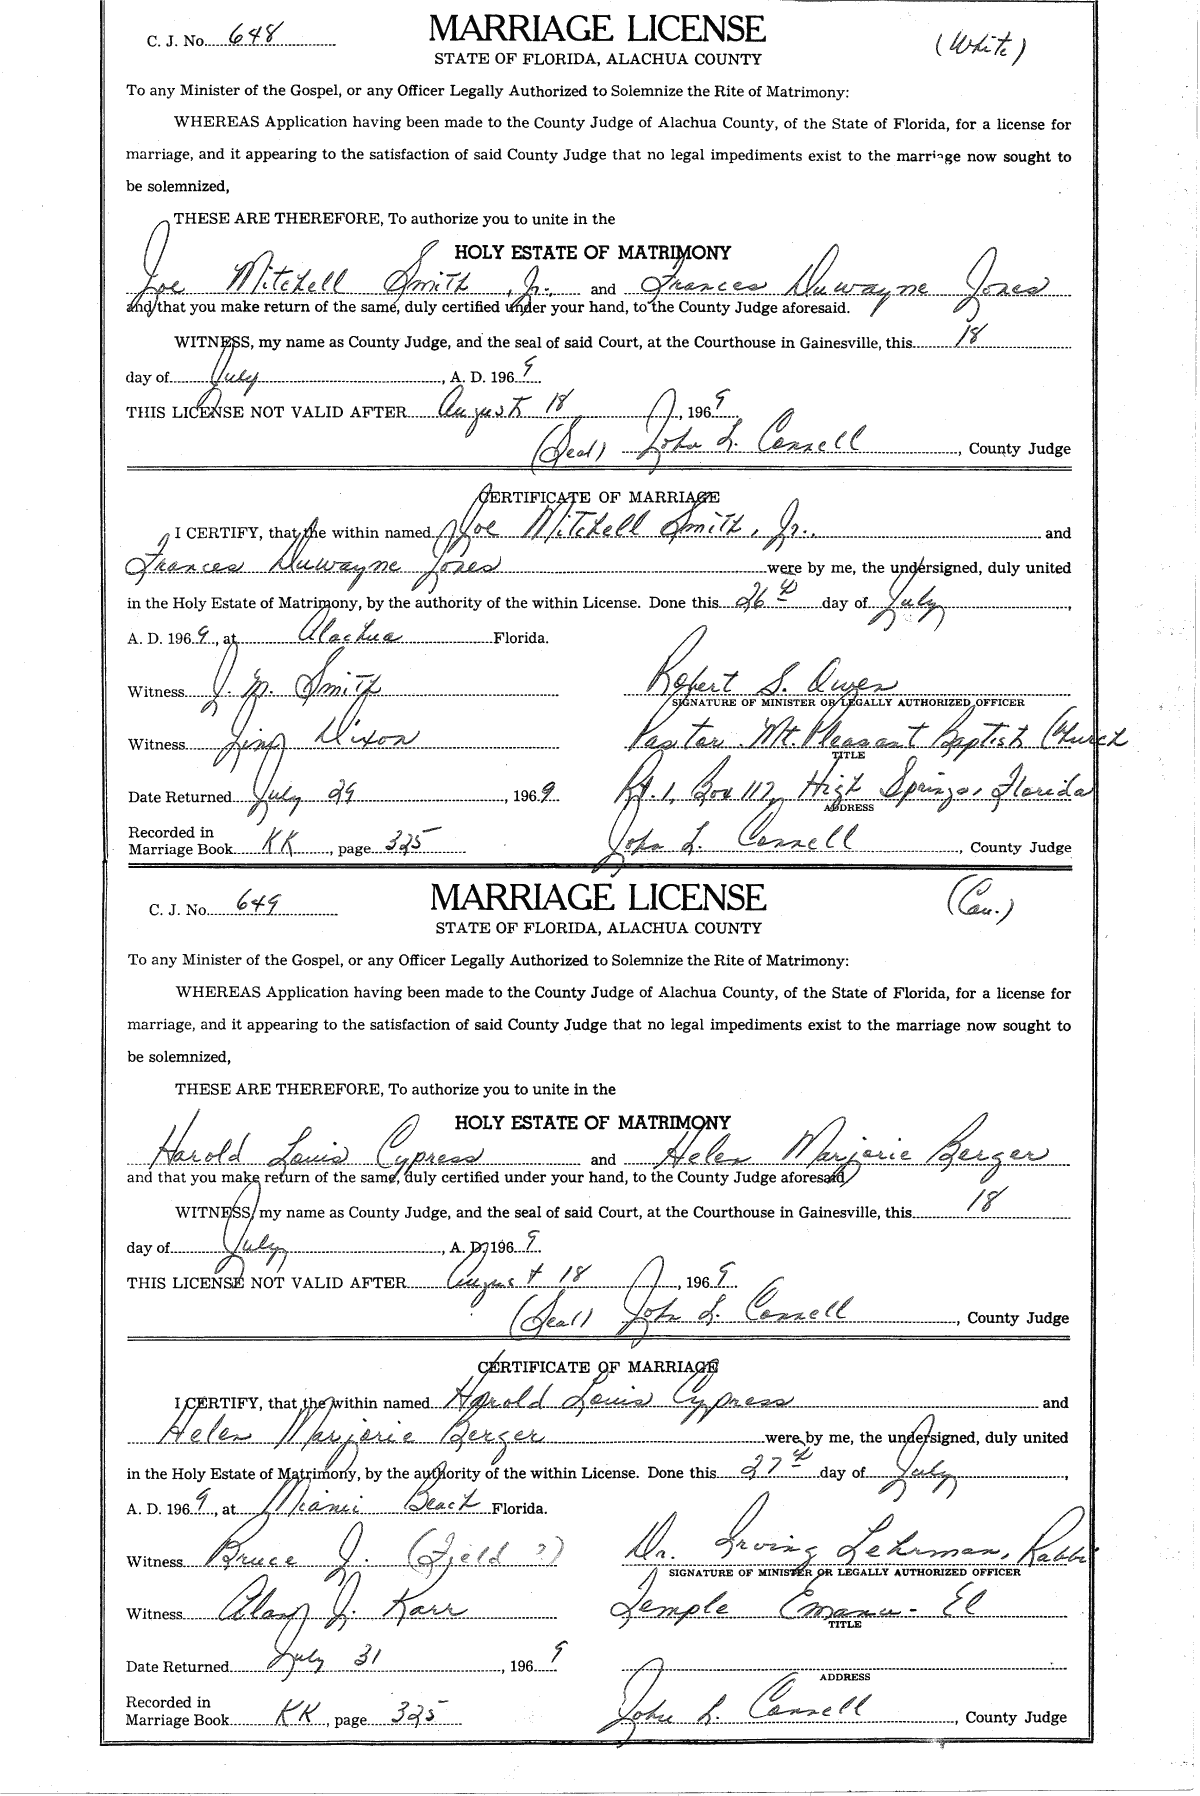 C. J. No. 648 MARRIAGE LICENSE (White)
STATE OF FLORIDA, ALACHUA COUNTY
To any Minister of the Gospel, or any Officer Legally Authorized to Solemnize the Rite of Matrimony:
WHEREAS Application having been made to the County Judge of Alachua County, of the State of Florida, for a license for
marriage, and it appearing to the satisfaction of said County Judge that no legal impediments exist to the marriage now sought to
be solemnized,
THESE ARE THEREFORE, To authorize you to unite in the
HOLY ESTATE OF MATRIMONY
Joe Mitchell Smith, Jr., and Frances Duwayne Jones
and that you make return of the same, duly certified under your hand, to the County Judge aforesaid.
WITNESS, my name as County Judge, and the seal of said Court, at the Courthouse in Gainesville, this 18
day of July, A. D. 1969
THIS LICENSE NOT VALID AFTER August 18, 1969
(Seal) John L. Connell, County Judge
CERTIFICATE OF MARRIAGE
I CERTIFY, that the within named Joe Mitchell Smith, Jr., and
Frances Duwayne Jones were by me, the undersigned, duly united
in the Holy Estate of Matrimony, by the authority of the within License. Done this 26th day of July,
A. D. 1969, at Alachua Florida.
Witness J. M. Smith Robert S. Owen
SIGNATURE OF MINISTER OR LEGALLY AUTHORIZED OFFICER
Witness Dixon Pastor. Mt. Pleasant Baptist Church
TITLE
Date Returned July 29, 1969 Rt. 1, Box 117, High Springs, Florida
ADDRESS
Recorded in
Marriage Book KK, page 325 John L. Connell, County Judge
C. J. No. 649 MARRIAGE LICENSE (Cau.)
STATE OF FLORIDA, ALACHUA COUNTY
To any Minister of the Gospel, or any Officer Legally Authorized to Solemnize the Rite of Matrimony:
WHEREAS Application having been made to the County Judge of Alachua County, of the State of Florida, for a license for
marriage, and it appearing to the satisfaction of said County Judge that no legal impediments exist to the marriage now sought to
be solemnized,
THESE ARE THEREFORE, To authorize you to unite in the
HOLY ESTATE OF MATRIMONY
Harold Louis Cypress and Helen Marjorie Berger
and that you make return of the same, duly certified under your hand, to the County Judge aforesaid.
WITNESS, my name as County Judge, and the seal of said Court, at the Courthouse in Gainesville, this 18
day of July, A. D. 1969
THIS LICENSE NOT VALID AFTER August 18, 1969
(Seal) John L. Connell, County Judge
CERTIFICATE OF MARRIAGE
I CERTIFY, that the within named Harold Louis Cypress and
Helen Marjorie Berger were by me, the undersigned, duly united
in the Holy Estate of Matrimony, by the authority of the within License. Done this 27th day of July,
A. D. 1969, at Miami Beach Florida.
Witness Bruce J. (Field ?) Dr. Irving Lehrman, Rabbi
SIGNATURE OF MINISTER OR LEGALLY AUTHORIZED OFFICER
Witness Alan J. Karr Temple Emanu-El
TITLE
Date Returned July 31, 1969
ADDRESS
Recorded in
Marriage Book KK, page 325 John L. Connell, County Judge